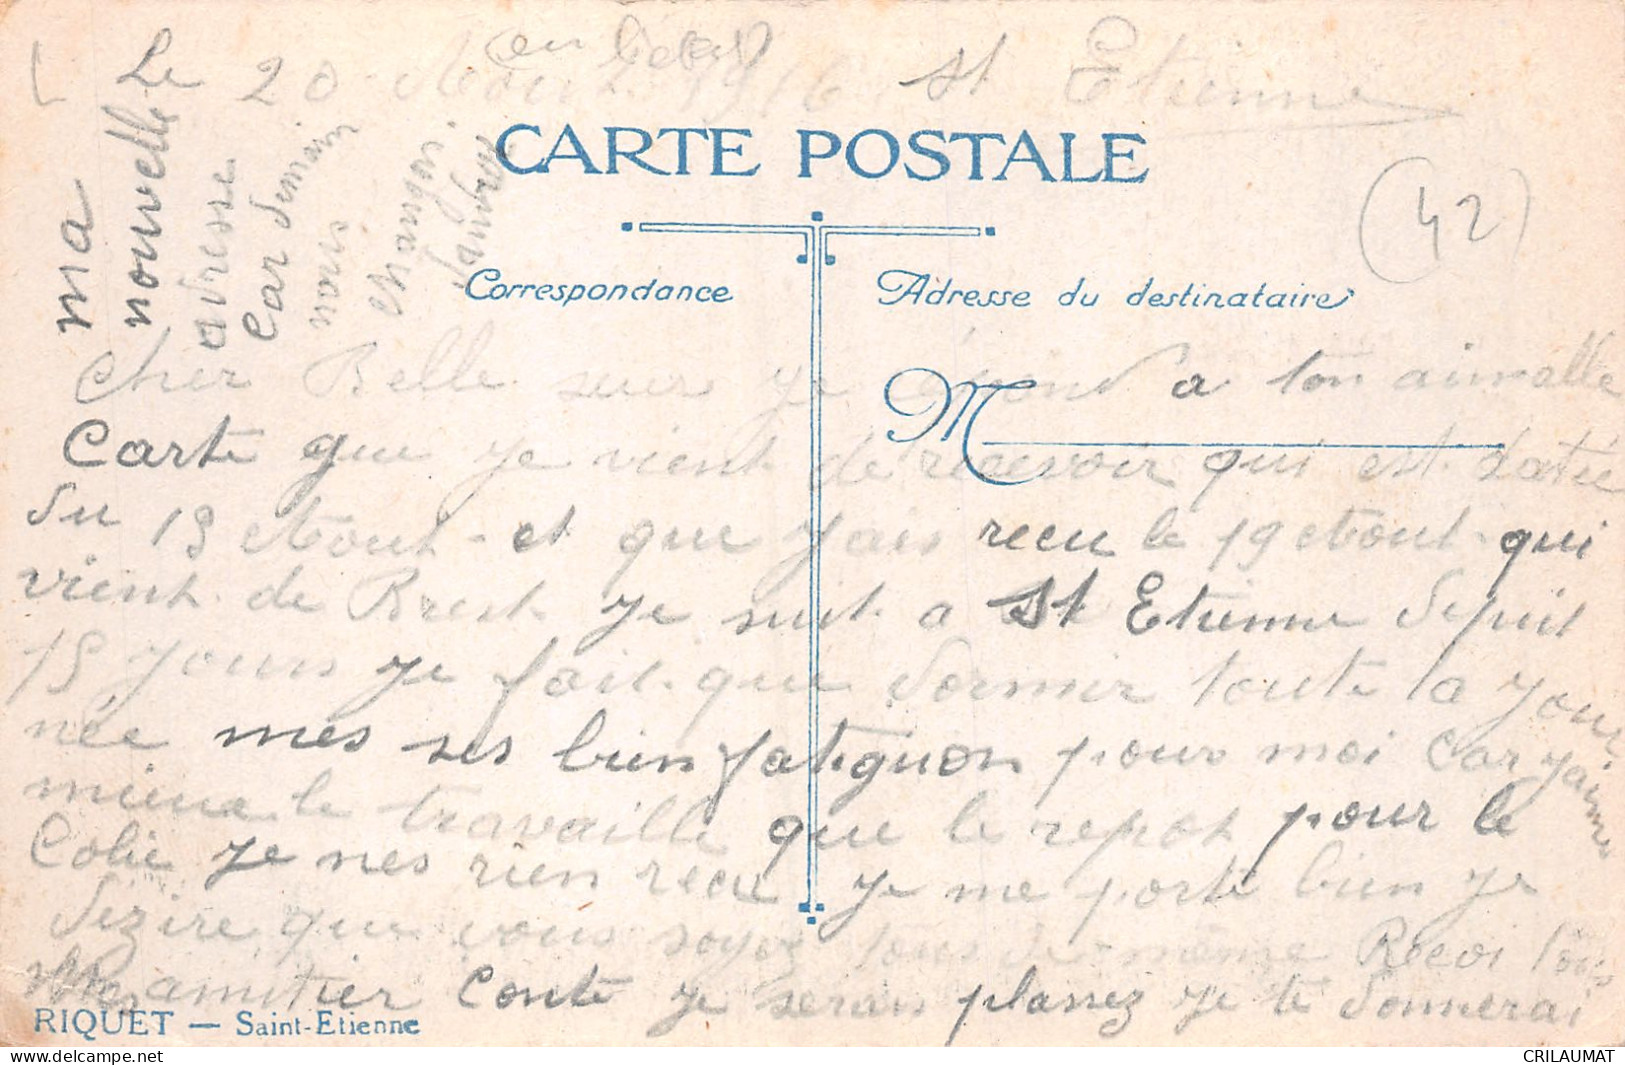 Le 20 Aout 1916 St Etienne
CARTE POSTALE
(42)
Correspondance
Adresse du destinataire
M
Cher Belle seur je a ton aimable
Carte que je vient de recevoir qui est datée
du 15 Aout et que j'ais recu le 19 Aout qui
vient de Brest je suit a St Etienne depuit
15 jours je fait que dormir toute la jour
née mes ses bien fatiguon pour moi car j'aime
mieux le travaille que le repos pour le
Colie je nes rien recu je me porte bien je
dezire que vous soyez tous de même Recoi tous
mes amitier Conte je seran plassez je te donnerai
ma
nouvelle
adresse
Car demain
nois
changon
RIQUET — Saint-Etienne
www.delcampe.net
CRILAUMAT